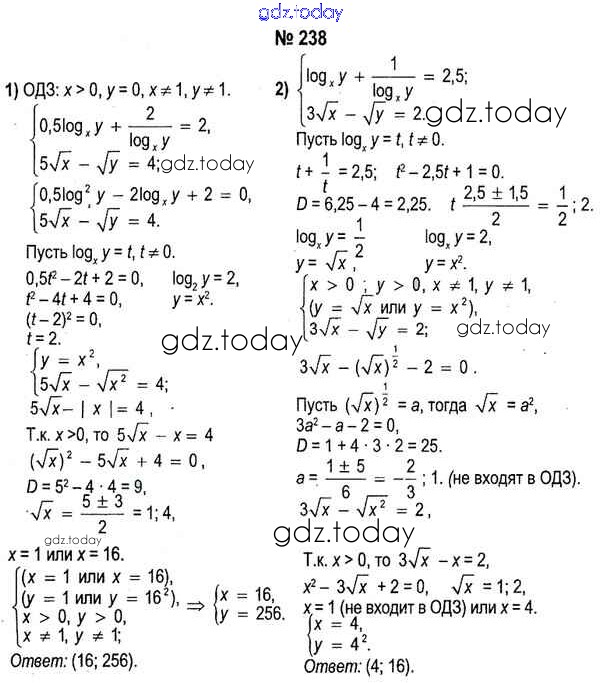 gdz.today
№ 238
1) ОДЗ: x > 0, y = 0, x ≠ 1, y ≠ 1.
{0,5log_x y + 2/(log_x y) = 2,
5√x − √y = 4; gdz.today
{0,5log²_x y − 2log_x y + 2 = 0,
5√x − √y = 4.
Пусть log_x y = t, t ≠ 0.
0,5t² − 2t + 2 = 0, log₂ y = 2,
t² − 4t + 4 = 0, y = x².
(t − 2)² = 0,
t = 2.
gdz.today
{y = x²,
5√x − √x² = 4;
5√x − | x | = 4 ,
Т.к. x >0, то 5√x − x = 4
(√x)² − 5√x + 4 = 0 ,
D = 5² − 4 · 4 = 9,
√x = (5 ± 3)/2 = 1; 4,
gdz.today
x = 1 или x = 16.
{(x = 1 или x = 16),
(y = 1 или y = 16²), ⇒ {x = 16,
x > 0, y > 0, y = 256.
x ≠ 1, y ≠ 1;
Ответ: (16; 256).
2) {log_x y + 1/(log_x y) = 2,5;
3√x − √y = 2. gdz.today
Пусть log_x y = t, t ≠ 0.
t + 1/t = 2,5; t² − 2,5t + 1 = 0.
D = 6,25 − 4 = 2,25. t (2,5 ± 1,5)/2 = 1/2 ; 2.
log_x y = 1/2 log_x y = 2,
y = √x , y = x².
{x > 0 ; y > 0, x ≠ 1, y ≠ 1,
(y = √x или y = x²),
3√x − √y = 2;
3√x − (√x)^(1/2) − 2 = 0 .
Пусть (√x)^(1/2) = a, тогда √x = a²,
3a² − a − 2 = 0,
D = 1 + 4 · 3 · 2 = 25.
a = (1 ± 5)/6 = −2/3 ; 1. (не входят в ОДЗ).
3√x − √x² = 2 ,
gdz.today
Т.к. x > 0, то 3√x − x = 2,
x² − 3√x + 2 = 0, √x = 1; 2,
x = 1 (не входит в ОДЗ) или x = 4.
{x = 4,
y = 4².
Ответ: (4; 16).